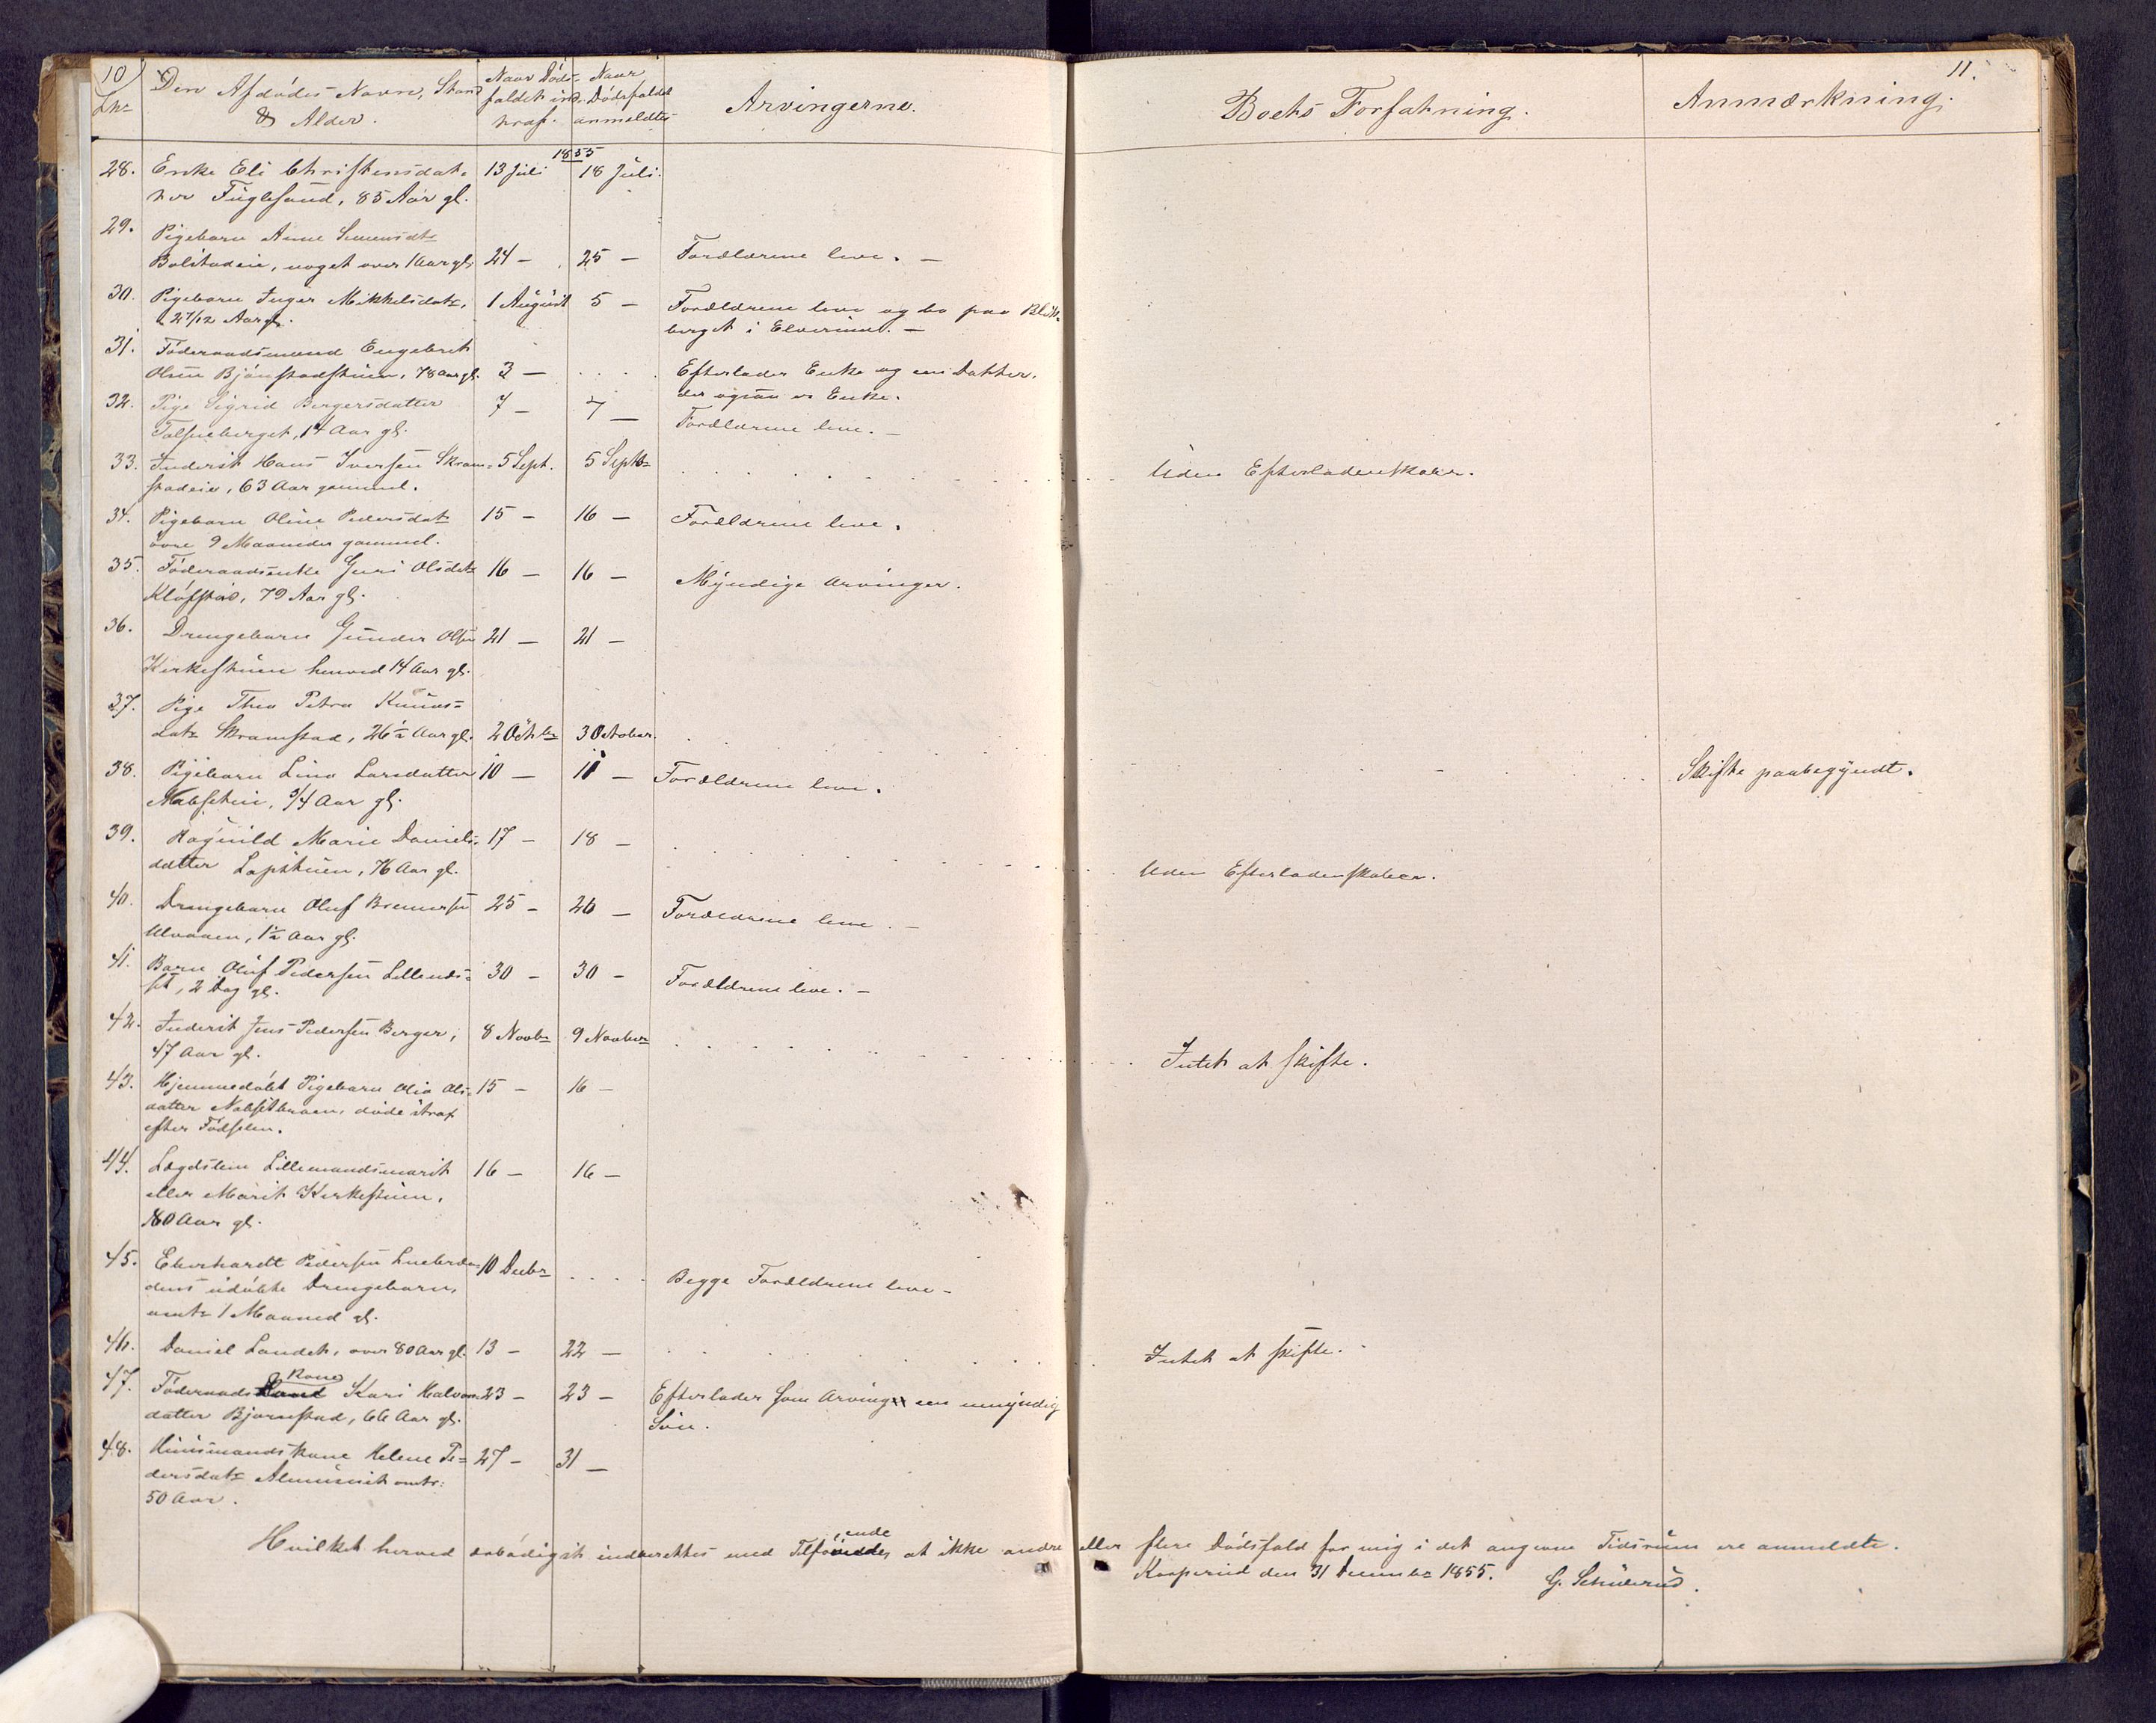 10
Den Afdödes Navn, Stand
& Alder.
Naar Döds-
faldet ind-
traf.
Naar
Dödsfaldet
anmeldtes
Arvingerne.
Boets Forfatning.
Anmærkning.
11.
1855
28. Enke Eli Christensdat- 13 Juli 18 Juli.
ter Fuglesund, 85 Aar gl.
29. Pigebarn Anne Simensdtr
noget over 1 Aar gl. 24 — 25 — Forældrene leve. —
30. Pigebarn Inger Mikkelsdatr, 1 August 5 — Forældrene leve og bo paa
2 7/12 Aar gl. berget i Elverum. —
31. Föderaadsmand Engebret
Olsen Bjönstadstuen, 78 Aar gl. 3 — . . . . Efterlader Enke og en Datter,
der ogsaa er Enke.
32. Pige Sigrid Bergersdatter 7 — 7 —
14 Aar gl. Forældrene leve. —
33. Inderst Hans Iversen Skram- 5 Sept. 5 Septbr Uden Efterladenskaber.
stadeie, 63 Aar gammel.
34. Pigebarn Oline Pedersdatr 15 — 16 — Forældrene leve.
9 Maaneder gammel.
35. Föderaadsenke Guri Olsdatr 16 — 16 — Myndige Arvinger.
Klöfstad, 79 Aar gl.
36. Drengebarn Gunder Olsen 21 — 21 —
Kirkestuen henved 14 Aar gl.
37. Pige Thea Petra Knuds-
datr Skramstad, 26½ Aar gl. 2 Octbr 3 October. Skifte paabegyndt.
38. Pigebarn Lina Larsdatter 10 — 11 — Forældrene leve.
5/4 Aar gl.
39. Ragnild Marie Daniels- 17 — 18 — Uden Efterladenskaber.
datter Lapstuen, 76 Aar gl.
40. Drengebarn Oluf 25 — 26 — Forældrene leve. —
Ulvaaen, 1½ Aar gl.
41. Barn Oluf Pedersen 30 — 30 — Forældrene leve. —
2 Dag gl.
42. Inderst Jens Pedersen Berger, 8 Novbr 9 Novber Intet at skifte.
47 Aar gl.
43. Hjemmedöbt Pigebarn Olia Ols- 15 — 16 —
datter döde strax
efter Födselen.
44. Lægdslem Lillemandsmarit 16 — 16 —
eller Marit Kirkestuen,
80 Aar gl.
45. Eberhardt Pedersen 10 Decbr . . . . Begge Forældrene leve —
udöbte Drengebarn,
omtr 1 Maaned gl.
46. Daniel Landet, over 80 Aar gl. 13 — 22 — Intet at skifte.
47. Föderaads Kone Kari Halvors- 23 — 23 — Efterlader som Arving en umyndig
datter Bjørnstad, 66 Aar gl. Sön.
48. Huusmandskone Helene Pe- 27 — 31 —
dersdatr omtr:
50 Aar.
Hvilket herved ærbödigst indberettes med Tilföiende, at ikke andre eller flere Dödsfald for mig i det angivne Tidsrum ere anmeldte.
den 31 December 1855. G. Schulerud.